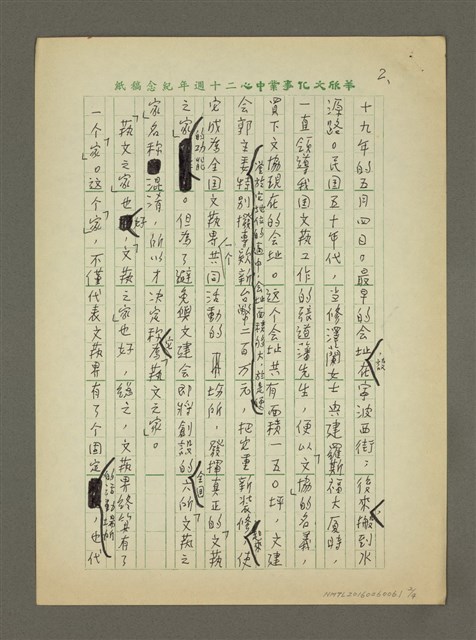 華欣文化事業中心二十週年紀念稿紙
2、
十九年的五月四日。最早的会址設在寧波西街;後來搬到水
源路。民国五十年代,当修澤蘭女士興建羅斯福大厦時,
一直領導我国文藝工作的張道藩先生,便以「文協」的名義,
買下文協現在的会址。这个会址共有面積一五〇坪,文建
会郭主委特別撥專款新台幣二百万元,把它重新裝修起來使
它成為全国文藝界共同活動的一个場所,發揮真正的「文藝
之家」的功能。但為了避免與文建会即將創設的全国六所「文藝之
家」名称混淆,所以才決定称為「文藝文之家」。
「藝文之家」也好,「文藝之家」也好,總之,文藝界終算有了
一个「家」。这个「家」,不僅代表文藝界有了个固定的活動場所,也代
NMTL20160060061 2/4